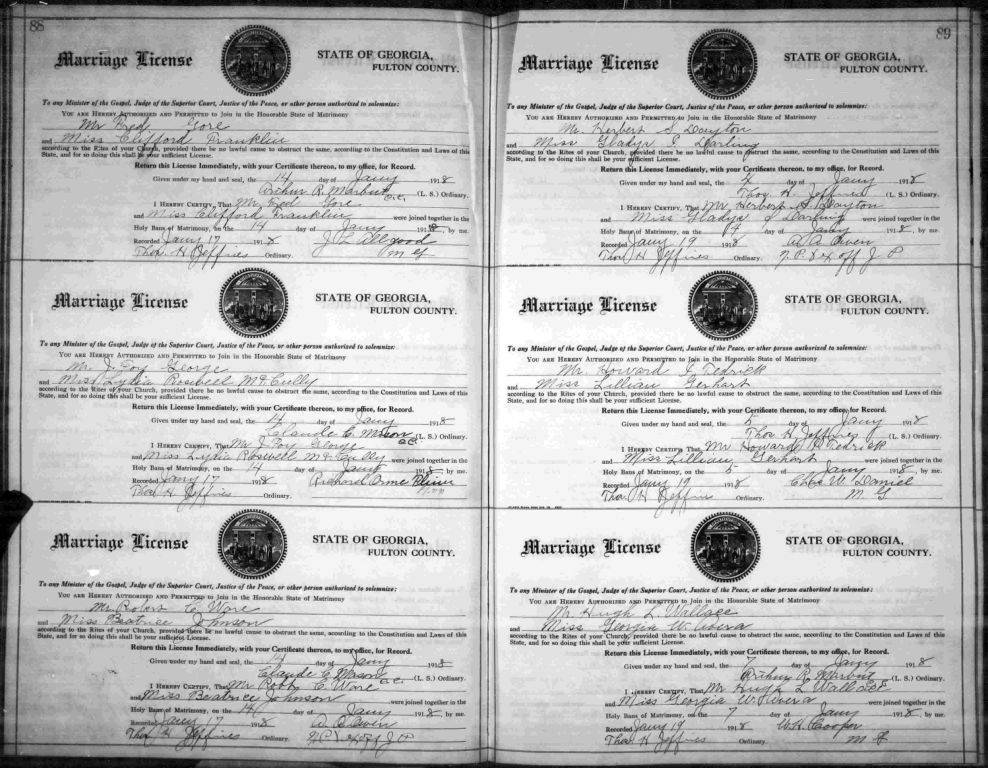 88
Marriage License
STATE OF GEORGIA,
FULTON COUNTY.
To any Minister of the Gospel, Judge of the Superior Court, Justice of the Peace, or other person authorized to solemnize:
YOU ARE HEREBY AUTHORIZED AND PERMITTED to Join in the Honorable State of Matrimony
Mr Fred Gore
and Miss Clifford Franklin
according to the Rites of your Church, provided there be no lawful cause to obstruct the same, according to the Constitution and Laws of this
State, and for so doing this shall be your sufficient License.
Return this License Immediately, with your Certificate thereon, to my office, for Record.
Given under my hand and seal, the 14 day of Jany 1918
Arthur R. Marbut (L. S.) Ordinary.
I HEREBY CERTIFY, That Mr Fred Gore
and Miss Clifford Franklin were joined together in the
Holy Bans of Matrimony, on the 14 day of Jany 1918, by me.
Recorded Jany 17 1918 J L Allgood
Thos. H Jeffries Ordinary. M G
Marriage License
STATE OF GEORGIA,
FULTON COUNTY.
To any Minister of the Gospel, Judge of the Superior Court, Justice of the Peace, or other person authorized to solemnize:
YOU ARE HEREBY AUTHORIZED AND PERMITTED to Join in the Honorable State of Matrimony
Mr J. Foy George
and Miss Lydia Roswell McCully
according to the Rites of your Church, provided there be no lawful cause to obstruct the same, according to the Constitution and Laws of this
State, and for so doing this shall be your sufficient License.
Return this License Immediately, with your Certificate thereon, to my office, for Record.
Given under my hand and seal, the 14 day of Jany 1918
Claude C. Mason (L. S.) Ordinary.
I HEREBY CERTIFY, That Mr J. Foy George
and Miss Lydia Roswell McCully were joined together in the
Holy Bans of Matrimony, on the 14 day of Jany 1918, by me.
Recorded Jany 17 1918 Richard Orme Flinn
Thos. H Jeffries Ordinary.
Marriage License
STATE OF GEORGIA,
FULTON COUNTY.
To any Minister of the Gospel, Judge of the Superior Court, Justice of the Peace, or other person authorized to solemnize:
YOU ARE HEREBY AUTHORIZED AND PERMITTED to Join in the Honorable State of Matrimony
Mr Robert C. Ware
and Miss Beatrice Johnson
according to the Rites of your Church, provided there be no lawful cause to obstruct the same, according to the Constitution and Laws of this
State, and for so doing this shall be your sufficient License.
Return this License Immediately, with your Certificate thereon, to my office, for Record.
Given under my hand and seal, the 14 day of Jany 1918
Claude C Mason (L. S.) Ordinary.
I HEREBY CERTIFY, That Mr Robt C. Ware
and Miss Beatrice Johnson were joined together in the
Holy Bans of Matrimony, on the 14 day of Jany 1918, by me.
Recorded Jany 17 1918 Owen
Thos. H Jeffries Ordinary. J P
89
Marriage License
STATE OF GEORGIA,
FULTON COUNTY.
To any Minister of the Gospel, Judge of the Superior Court, Justice of the Peace, or other person authorized to solemnize:
YOU ARE HEREBY AUTHORIZED AND PERMITTED to Join in the Honorable State of Matrimony
Mr. Herbert S Dayton
and Miss Gladys S Darling
according to the Rites of your Church, provided there be no lawful cause to obstruct the same, according to the Constitution and Laws of this
State, and for so doing this shall be your sufficient License.
Return this License Immediately, with your Certificate thereon, to my office, for Record.
Given under my hand and seal, the day of Jany 1918
Thos H Jeffries (L. S.) Ordinary.
I HEREBY CERTIFY, That Mr Herbert S Dayton
and Miss Gladys S Darling were joined together in the
Holy Bans of Matrimony, on the day of Jany 1918, by me.
Recorded Jany 19 1918 Owen
Thos H Jeffries Ordinary. N. P. & Ex off J P
Marriage License
STATE OF GEORGIA,
FULTON COUNTY.
To any Minister of the Gospel, Judge of the Superior Court, Justice of the Peace, or other person authorized to solemnize:
YOU ARE HEREBY AUTHORIZED AND PERMITTED to Join in the Honorable State of Matrimony
Mr Howard Tedrick
and Miss Lillian Gerhart
according to the Rites of your Church, provided there be no lawful cause to obstruct the same, according to the Constitution and Laws of this
State, and for so doing this shall be your sufficient License.
Return this License Immediately, with your Certificate thereon, to my office, for Record.
Given under my hand and seal, the 5 day of Jany 1918
Thos H Jeffries (L. S.) Ordinary.
I HEREBY CERTIFY, That Mr Howard Tedrick
and Miss Lillian Gerhart were joined together in the
Holy Bans of Matrimony, on the 5 day of Jany 1918, by me.
Recorded Jany 19 1918 Chas W. Daniel
Thos. H Jeffries Ordinary. M G
Marriage License
STATE OF GEORGIA,
FULTON COUNTY.
To any Minister of the Gospel, Judge of the Superior Court, Justice of the Peace, or other person authorized to solemnize:
YOU ARE HEREBY AUTHORIZED AND PERMITTED to Join in the Honorable State of Matrimony
Mr Hugh L Wallace
and Miss Georgia
according to the Rites of your Church, provided there be no lawful cause to obstruct the same, according to the Constitution and Laws of this
State, and for so doing this shall be your sufficient License.
Return this License Immediately, with your Certificate thereon, to my office, for Record.
Given under my hand and seal, the 7 day of Jany 1918
Arthur R Marbut (L. S.) Ordinary.
I HEREBY CERTIFY, That Mr Hugh L Wallace
and Miss Georgia were joined together in the
Holy Bans of Matrimony, on the 7 day of Jany 1918, by me.
Recorded Jany 19 1918 W. H. Cooper
Thos H Jeffries Ordinary. M G